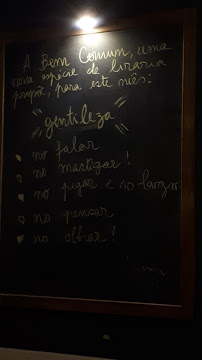 A Bem Comum, uma
nova espécie de livraria
propõe, para este mês:
"gentileza"
no falar
no mastigar!
no pegar e no largar
no pensar
no olhar!